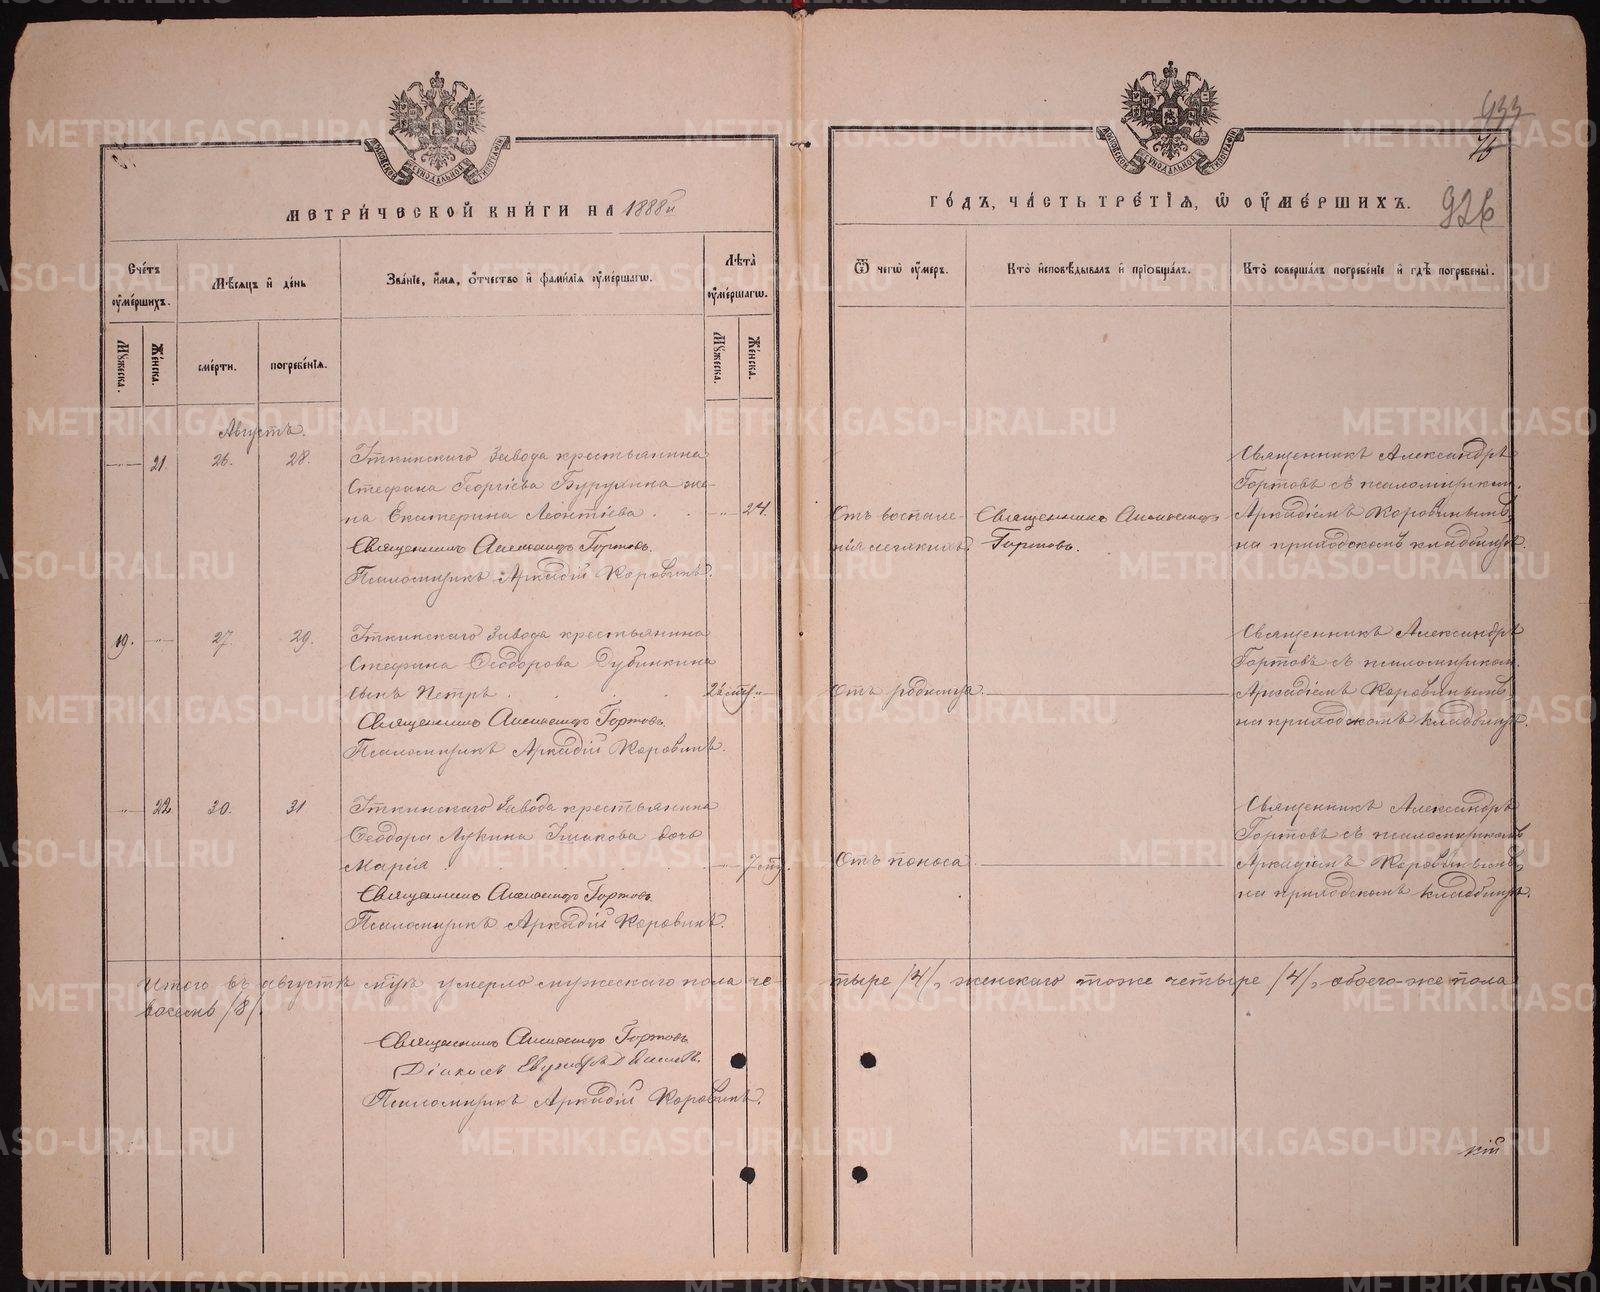 МЕТРИ́ЧЕСКОЙ КНИ́ГИ НА 1888й
ГО́ДЪ, ЧА́СТЬ ТРЕ́ТІЯ, Ѡ ОУ҆МЕ́РШИХЪ.
933
926
Сче́тъ оу҆ме́ршихъ.
Мѣ́сяцъ и҆ де́нь
Зва́ніе, и҆́мя, о҆́тчество и҆ фами́лія оу҆ме́ршагѡ.
Лѣ́та оу҆ме́ршагѡ.
Ѿ чегѡ̀ оу҆́меръ.
Кто̀ и҆сповѣ́дывалъ и҆ пріѡбща́лъ.
Кто̀ соверша́лъ погребе́ніе и҆ гдѣ̀ погребены̀.
Мꙋ́жеска.
Же́нска.
сме́рти.
погребе́нія.
Мꙋ́жеска.
Же́нска.
Августъ.
21. 26. 28. Уткинскаго Завода крестьянина
Стефана Георгіева Бурухина же-
на Екатерина Леонтіева 24.
Священникъ Александръ Гортовъ.
Псаломщикъ Аркадій Коровинъ.
Отъ воспале-
нія легкихъ
Священникъ Александръ
Гортовъ.
Священникъ Александръ
Гортовъ съ псаломщикомъ
Аркадіемъ Коровинымъ,
на приходскомъ кладбищѣ.
19. 27. 29. Уткинскаго Завода крестьянина
Стефана Ѳеодорова Дубинкина
сынъ Петръ
Священникъ Александръ Гортовъ.
Псаломщикъ Аркадій Коровинъ.
Отъ родимца.
Священникъ Александръ
Гортовъ съ псаломщиком.
Аркадіемъ Коровинымъ,
на приходскомъ кладбищѣ.
22 30. 31 Уткинскаго Завода крестьянина
Ѳеодора Лукина дочь
Марія
Священникъ Александръ Гортовъ.
Псаломщикъ Аркадій Коровинъ.
Отъ поноса
Священникъ Александръ
Гортовъ съ псаломщикомъ
Аркадіемъ Коровинымъ,
на приходскомъ кладбищѣ.
Итого въ августѣ м-цѣ умерло мужескаго пола че-
тыре /4/, женскаго тоже четыре /4/, обоего-же пола
восемь /8/.
Священникъ Александръ Гортовъ
Діаконъ
Псаломщикъ Аркадій Коровинъ.
кій
METRIKI.GASO-URAL.RU